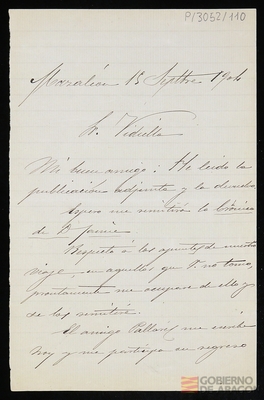 P/3052/110
Mazaleón 13 Septbre 1904
Sr. Vidiella
Mi buen amigo: He leido la
publicacion adjunta y la devuelvo.
Espero me remitirá la Crónica
de D. Jaime
Respecto á los apuntes de nuestro
viaje, en aquellos que V. no tomó,
prontamente me ocuparé de ello y
se los remitiré.
El amigo Pallarés me escribe
hoy y me participa su regreso
GOBIERNO
DE ARAGON